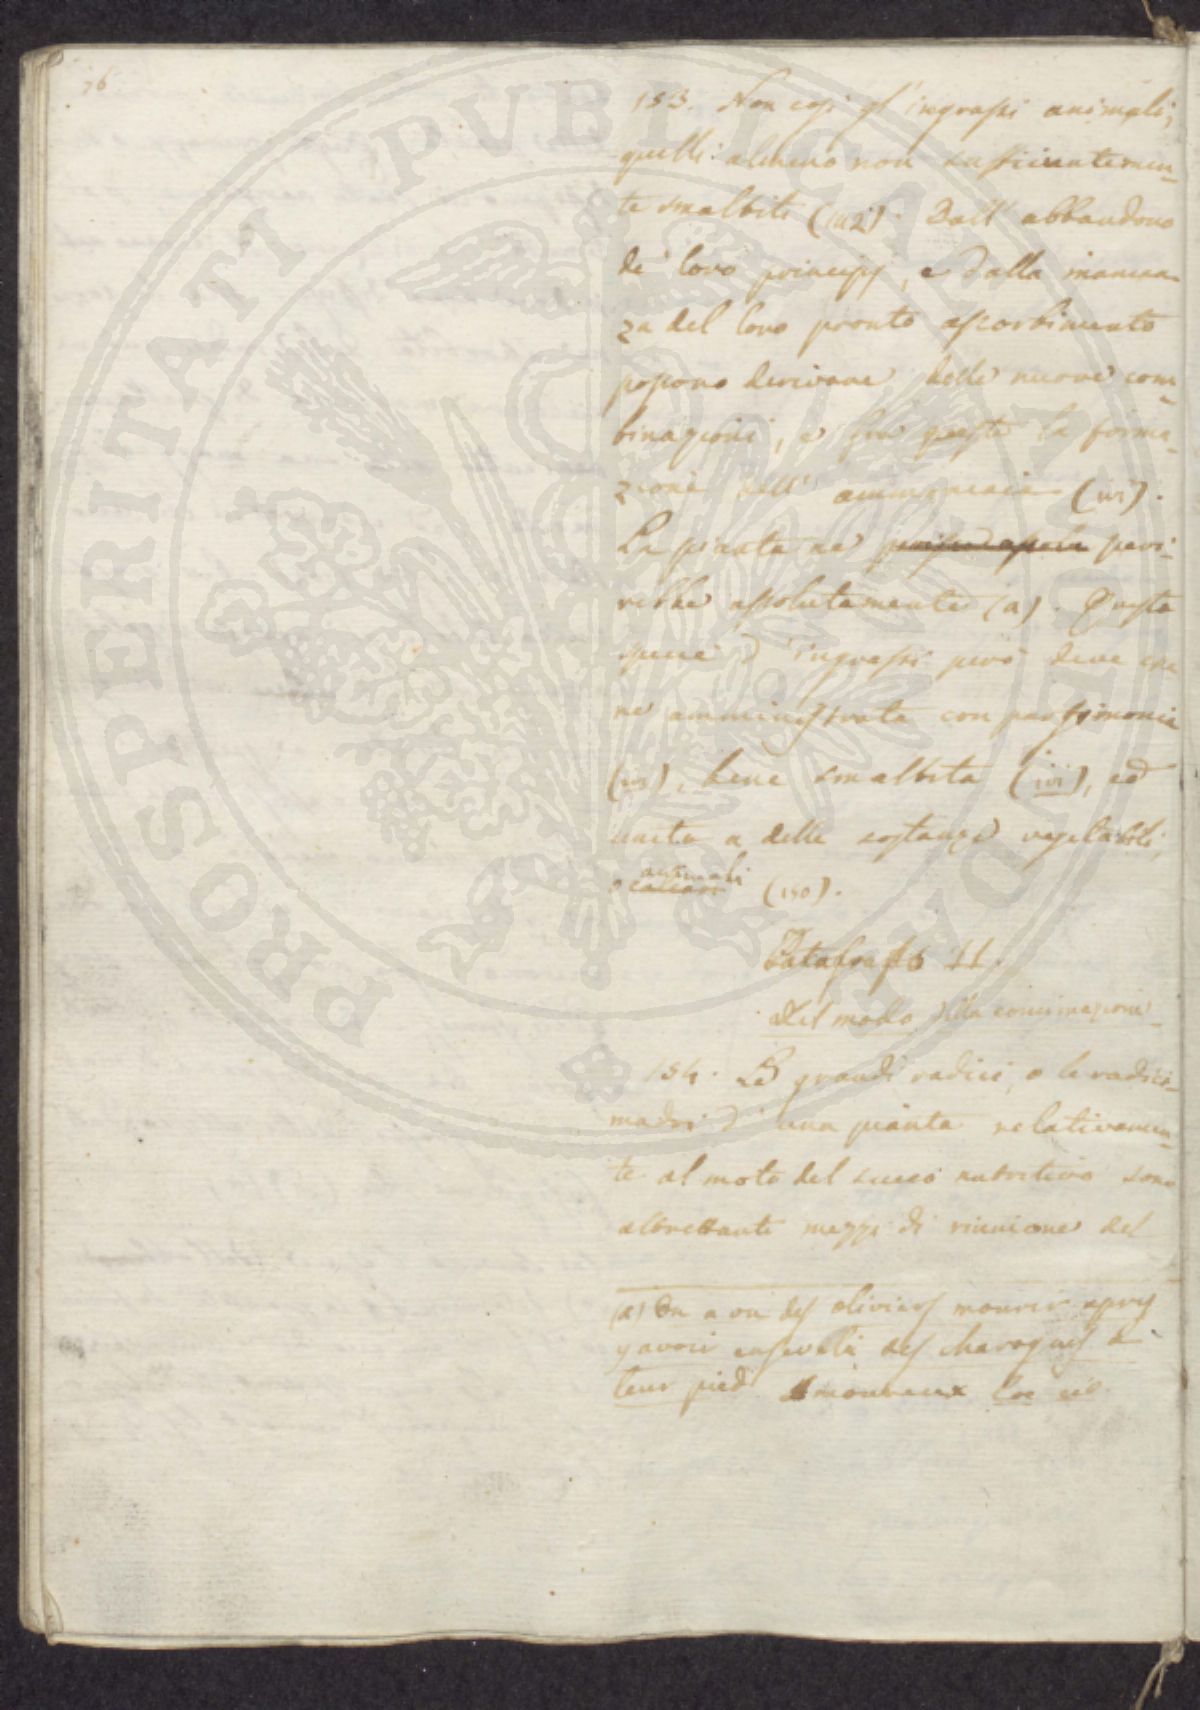 76
153. Non così gl'ingrassi animali,
quelli almeno non sufficientemen-
te smaltiti (142). Dall'abbandono
de' loro principj, e dalla mancan-
za del loro pronto assorbimento
possono derivare delle nuove com-
binazioni, e fra queste la forma-
zione dell'ammoniaca
La pianta ne peri-
rebbe assolutamente (a). Questa
specie d'ingrassi però deve esse-
re amministrata con parsimonia
bene smaltita ed
unita a delle sostanze vegetabili,
o animali calcari (150).
Paragrafo II.
Del modo della concimazione
154. Le grandi radici, o le radici-
madri d'una pianta relativamen-
te al moto del succo nutritivo sono
altrettanti mezzi di riunione del
(a) On a vu des oliviers mourir apres
y avoir enseveli des charognes a
leur pied Amoureux loc. cit.
PROSPERITATI PVBLICAE AVGENDAE